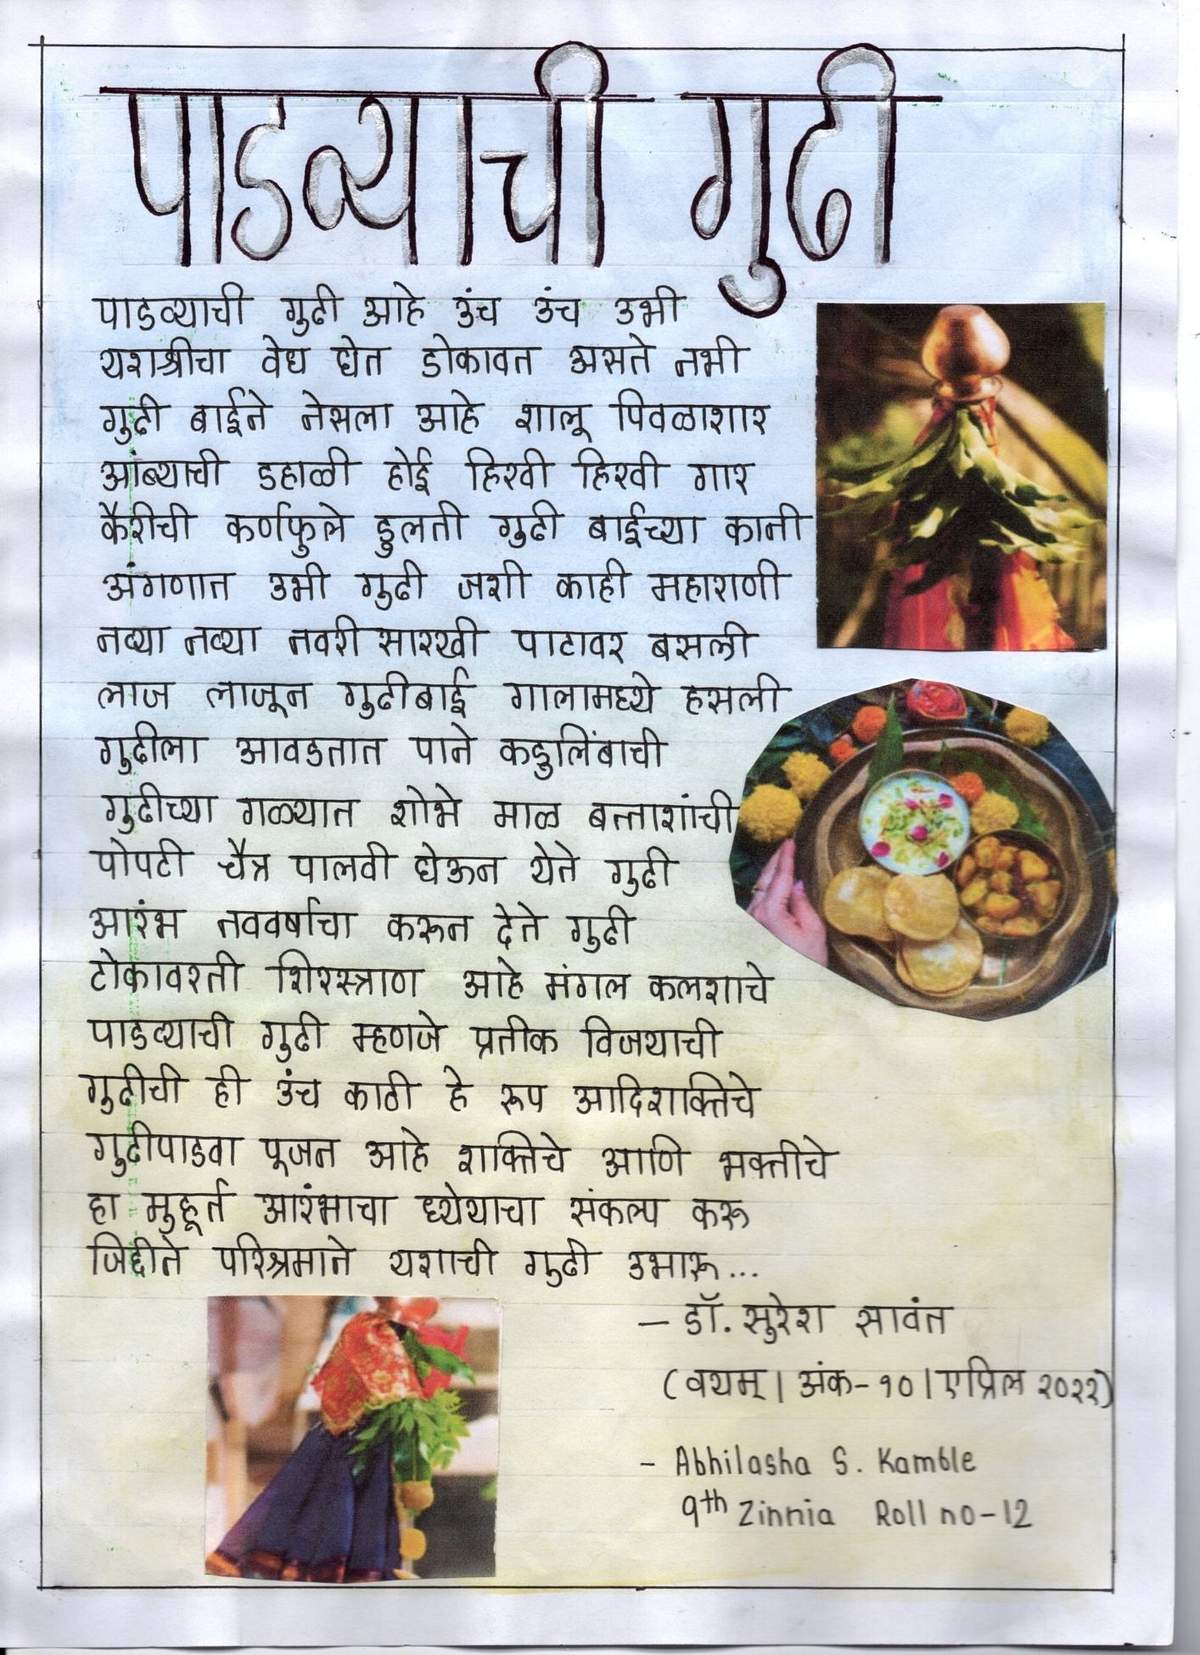 पाडव्याची गुढी
पाडव्याची गुढी आहे उंच उंच उभी
यशश्रीचा वेध घेत डोकावत असते नभी
गुढी बाईने नेसला आहे शालू पिवळाशार
आंब्याची डहाळी होई हिरवी हिरवी गार
कैरीची कर्णफुले डुलती गुढी बाईच्या कानी
अंगणात उभी गुढी जशी काही महाराणी
नव्या नव्या नवरी सारखी पाटावर बसली
लाज लाजून गुढीबाई गालामध्ये हसली
गुढीला आवडतात पाने कडुलिंबाची
गुढीच्या गळ्यात शोभे माळ बत्ताशांची
पोपटी चैत्र पालवी घेऊन येते गुढी
आरंभ नववर्षाचा करून देते गुढी
टोकावरती शिरस्त्राण आहे मंगल कलशाचे
पाडव्याची गुढी म्हणजे प्रतीक विजयाची
गुढीची ही उंच काठी हे रूप आदिशक्तिचे
गुढीपाडवा पूजन आहे शक्तिचे आणि भक्तीचे
हा मुहूर्त आरंभाचा ध्येयाचा संकल्प करू
जिद्दीने परिश्रमाने यशाची गुढी उभारू...
– डॉ. सुरेश सावंत
(वयम् । अंक-१० । एप्रिल २०२२)
- Abhilasha S. Kamble
9th Zinnia Roll no-12